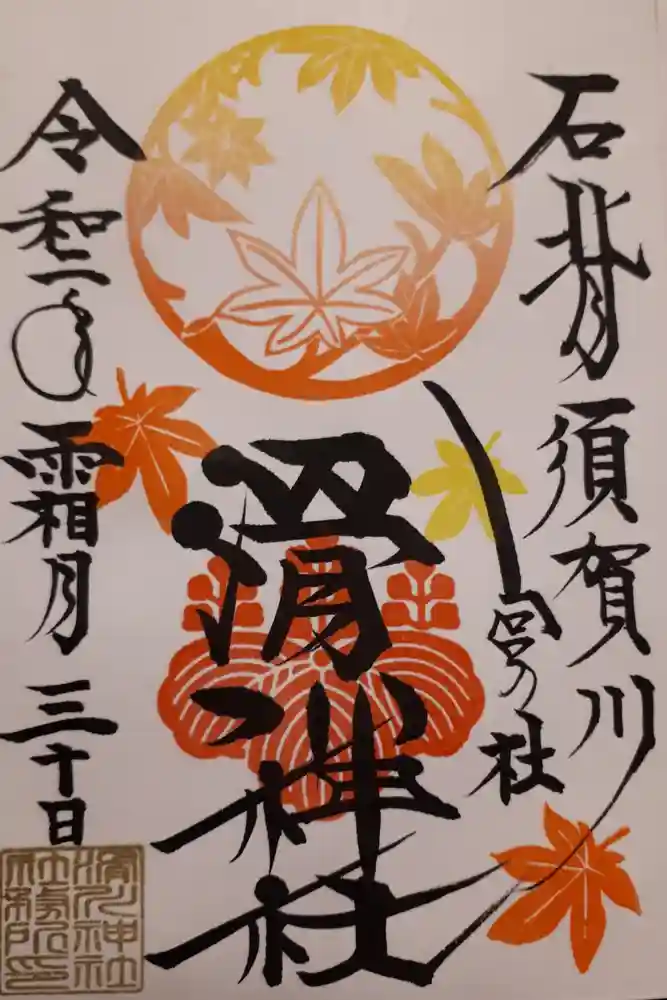 石背須賀川
宮の社
滑川神社
令和二年霜月三十日
滑川神社
社務所印